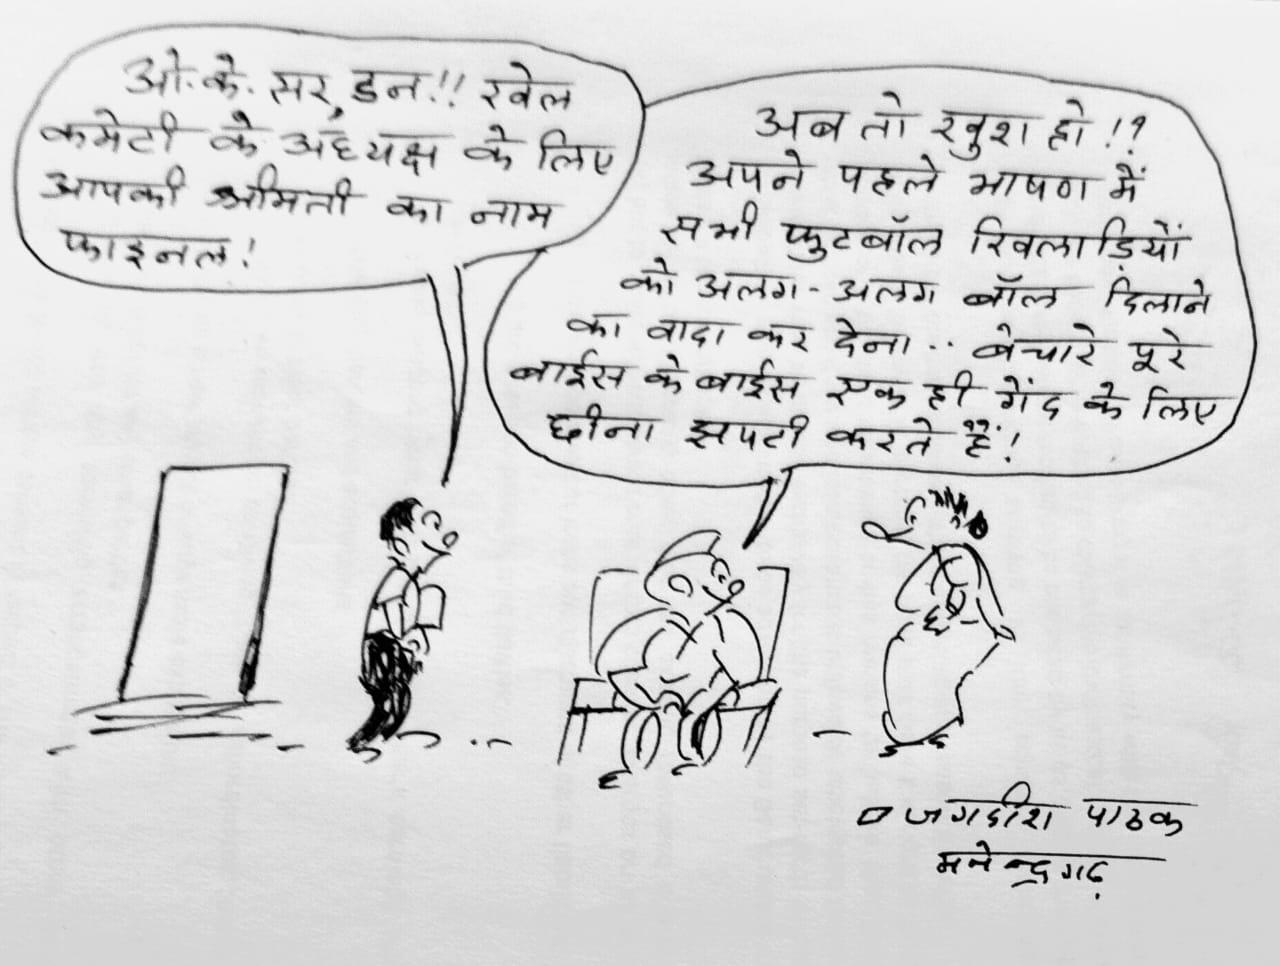 ओ.के. सर, डन!! खेल
कमेटी के अध्यक्ष के लिए
आपकी श्रीमती का नाम
फाइनल!
अब तो खुश हो!?
अपने पहले भाषण में
सभी फुटबॉल खिलाड़ियों
को अलग-अलग बॉल दिलाने
का वादा कर देना.. बेचारे पूरे
बाईस के बाईस एक ही गेंद के लिए
छीना झपटी करते हैं!
जगदीश पाठक
मनेन्द्रगढ़